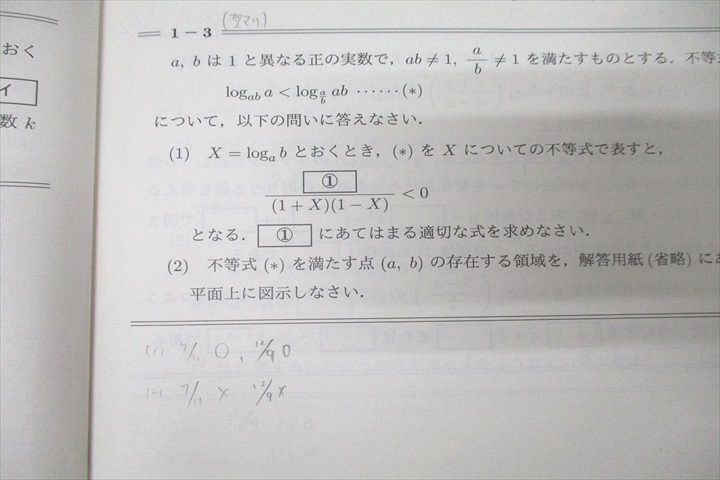 おく
イ
数 k
(聖マリ)
1－3
a, b は 1 と異なる正の実数で, ab ≠ 1, a/b ≠ 1 を満たすものとする. 不等式
log_{ab} a < log_{a/b} ab ……(*)
について, 以下の問いに答えなさい.
(1) X = log_a b とおくとき, (*) を X についての不等式で表すと,
①/((1+X)(1−X)) < 0
となる. ① にあてはまる適切な式を求めなさい.
(2) 不等式 (*) を満たす点 (a, b) の存在する領域を, 解答用紙 (省略) にあ
平面上に図示しなさい.
(1) 7/11 ○, 12/9 ○
(2) 7/11 × 12/9 ×